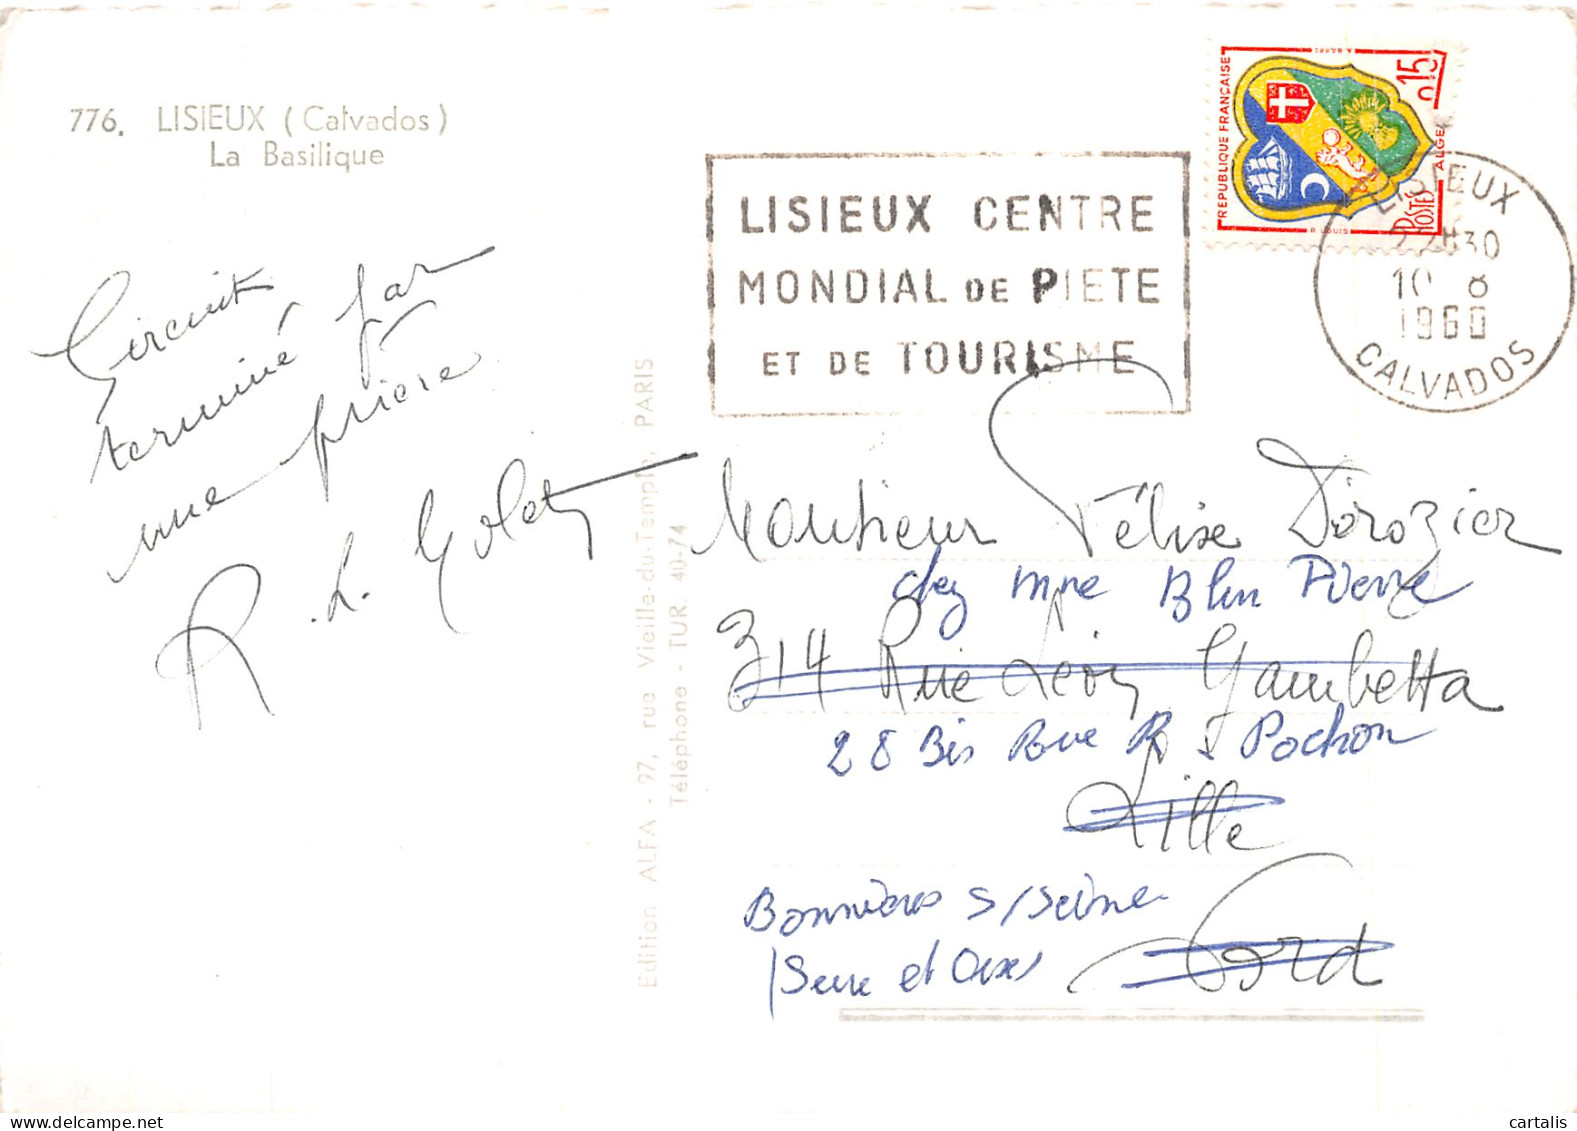 776. LISIEUX (Calvados)
La Basilique
Circuit
terminé par
une prière
R. L.
Edition ALFA - 97, rue Vieille-du-Temple, PARIS
Téléphone - TUR. 40-74
LISIEUX CENTRE
MONDIAL DE PIETE
ET DE TOURISME
REPUBLIQUE FRANÇAISE
0,15
ALGER
POSTES
LISIEUX
22H30
10 8
1960
CALVADOS
Monsieur Félix Dorozier
chez Mme Pierre
314 Rue Léon Gambetta
28 Bis Rue Pochon
Lille
Bonnières S/Seine
Nord
(Seine et Oise)
cartalis